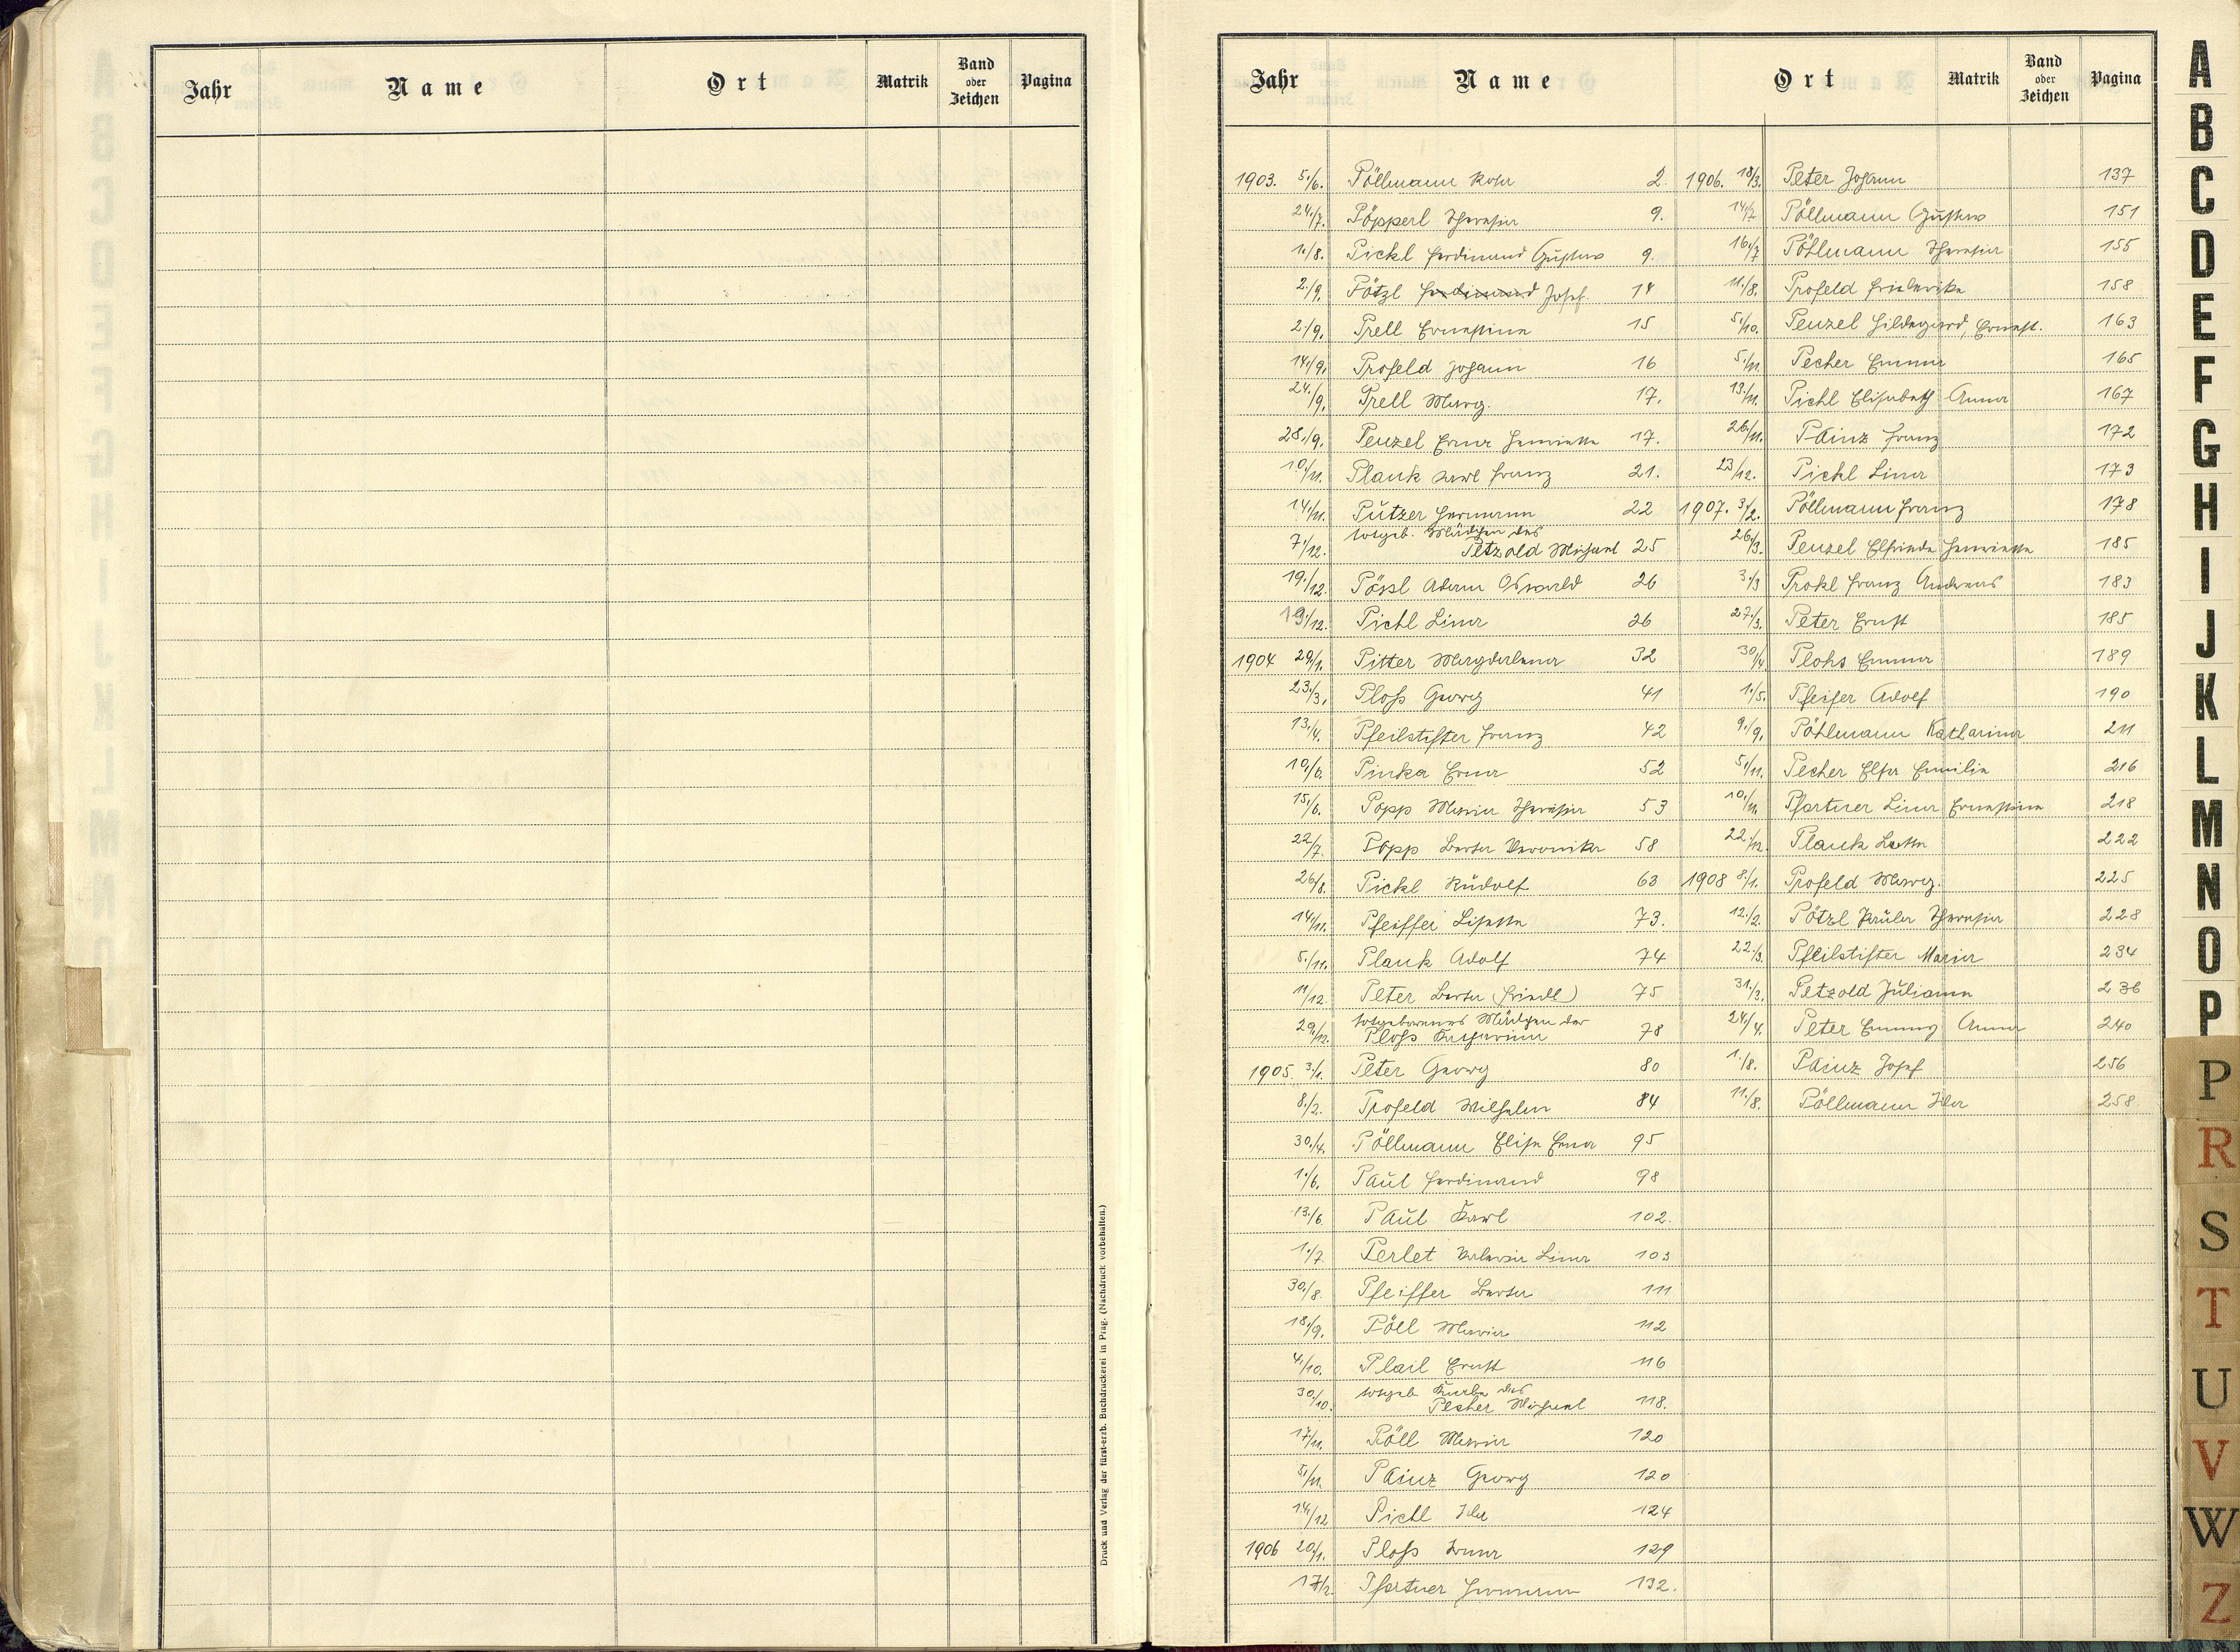 Jahr Name Ort Matrik Band oder Zeichen Pagina
Druck und Verlag der fürst-erzb. Buchdruckerei in Prag. (Nachdruck vorbehalten.)
Jahr Name Ort Matrik Band oder Zeichen Pagina
1903. 5./6. Pöllmann Rosa 2.
24./7. Pöpperl Theresia 9.
1./8. Pickl Ferdinand Gustav 9.
2./9. Pötzl Ferdinand Josef 14
2./9. Prell Ernestine 15
14./9. Profeld Johann 16
24./9. Prell Marg. 17.
28./9. Penzel Erna Henriette 17.
10./11. Plank Karl Franz 21.
14./11. Putzer Hermann 22
7./12. totgeb. Mädchen des
Petzold Michael 25
19./12. Pössl Adam Oswald 26
19./12. Pichl Lina 26
1904 29/1. Pitter Magdalena 32
23./3. Ploß Georg 41
13./4. Pfeilstifter Franz 42
10./6. Pinka Erna 52
15./6. Popp Maria Theresia 53
22/7. Popp Berta Veronika 58
26/8. Pickl Rudolf 63
14./11. Pfeiffer Lisette 73.
5./11. Plank Adolf 74
11/12. Peter Berta (Friedl) 75
29./12. totgeborenes Mädchen der
Ploß Katharina 78
1905. 3./1. Peter Georg 80
8./2. Profeld Wilhelm 84
30./4. Pöllmann Elisa Erna 95
1./6. Paul Ferdinand 98
13./6 Paul Karl 102.
1./7 Perlet Valeria Lina 103
30./8. Pfeiffer Berta 111
18./9. Pöll Maria 112
4./10. Plail Ernst 116
30./10. totgeb. Knabe des
Pecher Michael 118.
17/11. Pöll Maria 120
5./11. Painz Georg 120
14./12 Pichl Ida 124
1906 20/1. Ploß Anna 129
17/2. Pfortner Hermann 132.
1906. 18/3. Peter Johann 137
14/7 Pöllmann Gustav 151
16./7 Pöhlmann Theresia 155
11./8. Profeld Friederike 158
5./10. Penzel Hildegard, Ernest. 163
5./11. Pecher Emma 165
13./11. Pichl Elisabeth Anna 167
26./11. Painz Franz 172
23/12. Pickl Lina 173
1907. 3./2. Pöllmann Franz 178
26./3. Penzel Elfriede Henriette 185
3./3 Prokl Franz Andreas 183
27./3. Peter Ernst 185
30/4. Plohs Emma 189
1./5. Pfeifer Adolf 190
9./9. Pöhlmann Katharina 211
5./11. Pecher Elsa Emilie 216
10./11. Pfortner Lina Ernestine 218
22./12. Plank 222
1908 8./1. Profeld Marg. 225
12./2. Pötzl Paula Theresia 228
22./3. Pfeilstifter Maria 234
31./3. Petzold Juliana 236
24/4. Peter Emmy Anna 240
1./8. Painz Josef 256
11./8. Pöllmann Ida 258.
A
B
C
D
E
F
G
H
I
J
K
L
M
N
O
P
P
R
S
T
U
V
W
Z